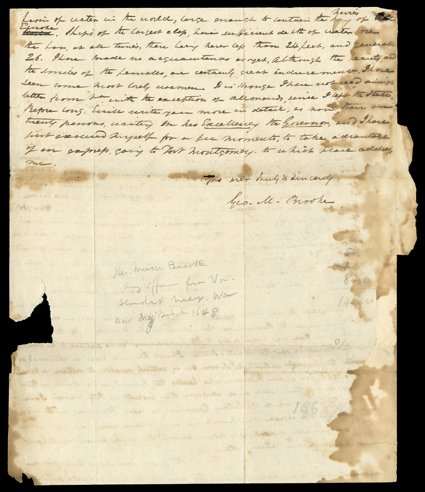 of water in the world, large enough to contain the navies of
Europe. Ships of the largest class, have sufficient depth of water over
the bar, at all times, there being never less than 24 feet, and generally
26. I have made no acquaintances as yet, although the beauty and
the smiles of the females, are certainly great inducements. I have
seen some most lovely women. It is strange I have not read
letter from with the exception of Allemand, since I left the States
Before long, I will write you more in detail, as now there are
twenty persons, waiting on his Excellency the Governor, and I have
just excused myself for a few moments, to take advantage
of an express going to Fort Montgomery, to which place address
me.
Yrs ever truly & sincerely
Geo. M. Brooke
Geo Mercer Brooke
Army Officer from Va.
1848